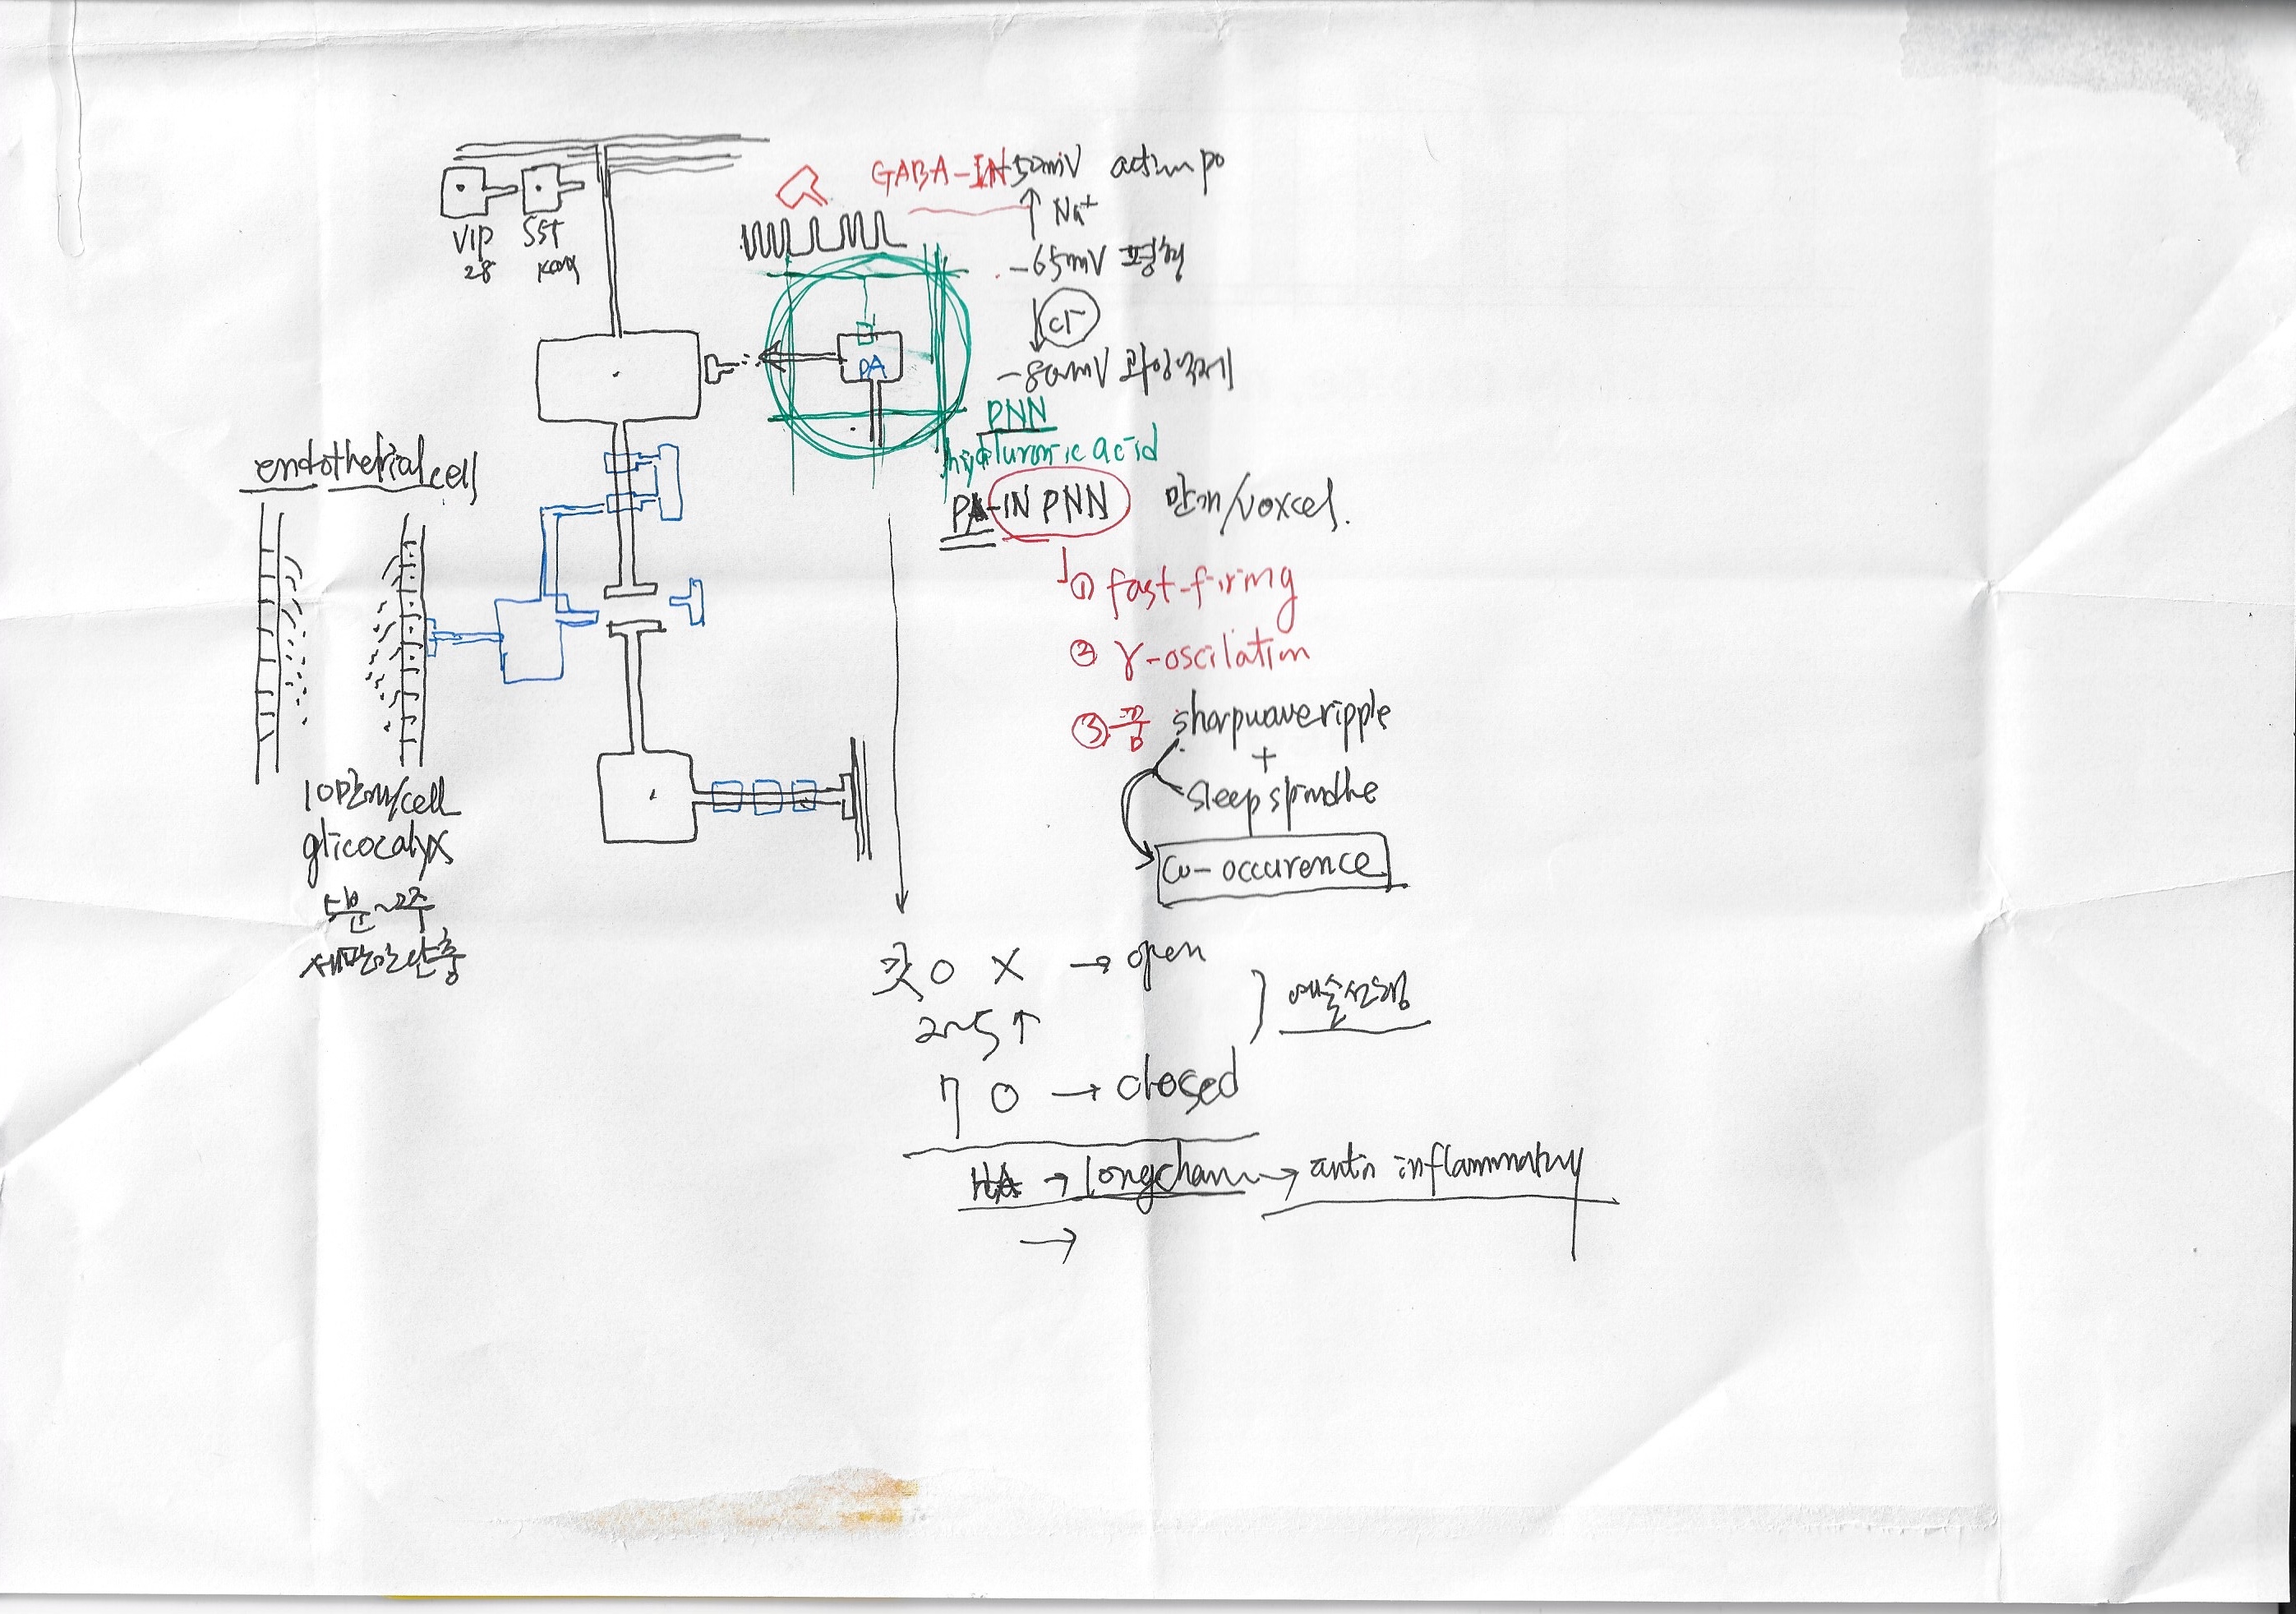 GABA-IN -50mV action po
↑ Na+
-65mV 평형
↓ Cl-
-80mV 과잉억제
VIP
28
SST
PA
PNN
hyaluronic acid
PA-IN PNN 만개/voxcel.
① fast-firing
② γ-oscilation
③ 꿈 sharpwave ripple
+
sleep spindle
Co-occurence
endothelial cell
10만개/cell
glicocalyx
5분~2주
세포 단층
갓 O X → open
2~5↑
7 O → closed
예술선행
HA → longchain → anti inflammatory
→